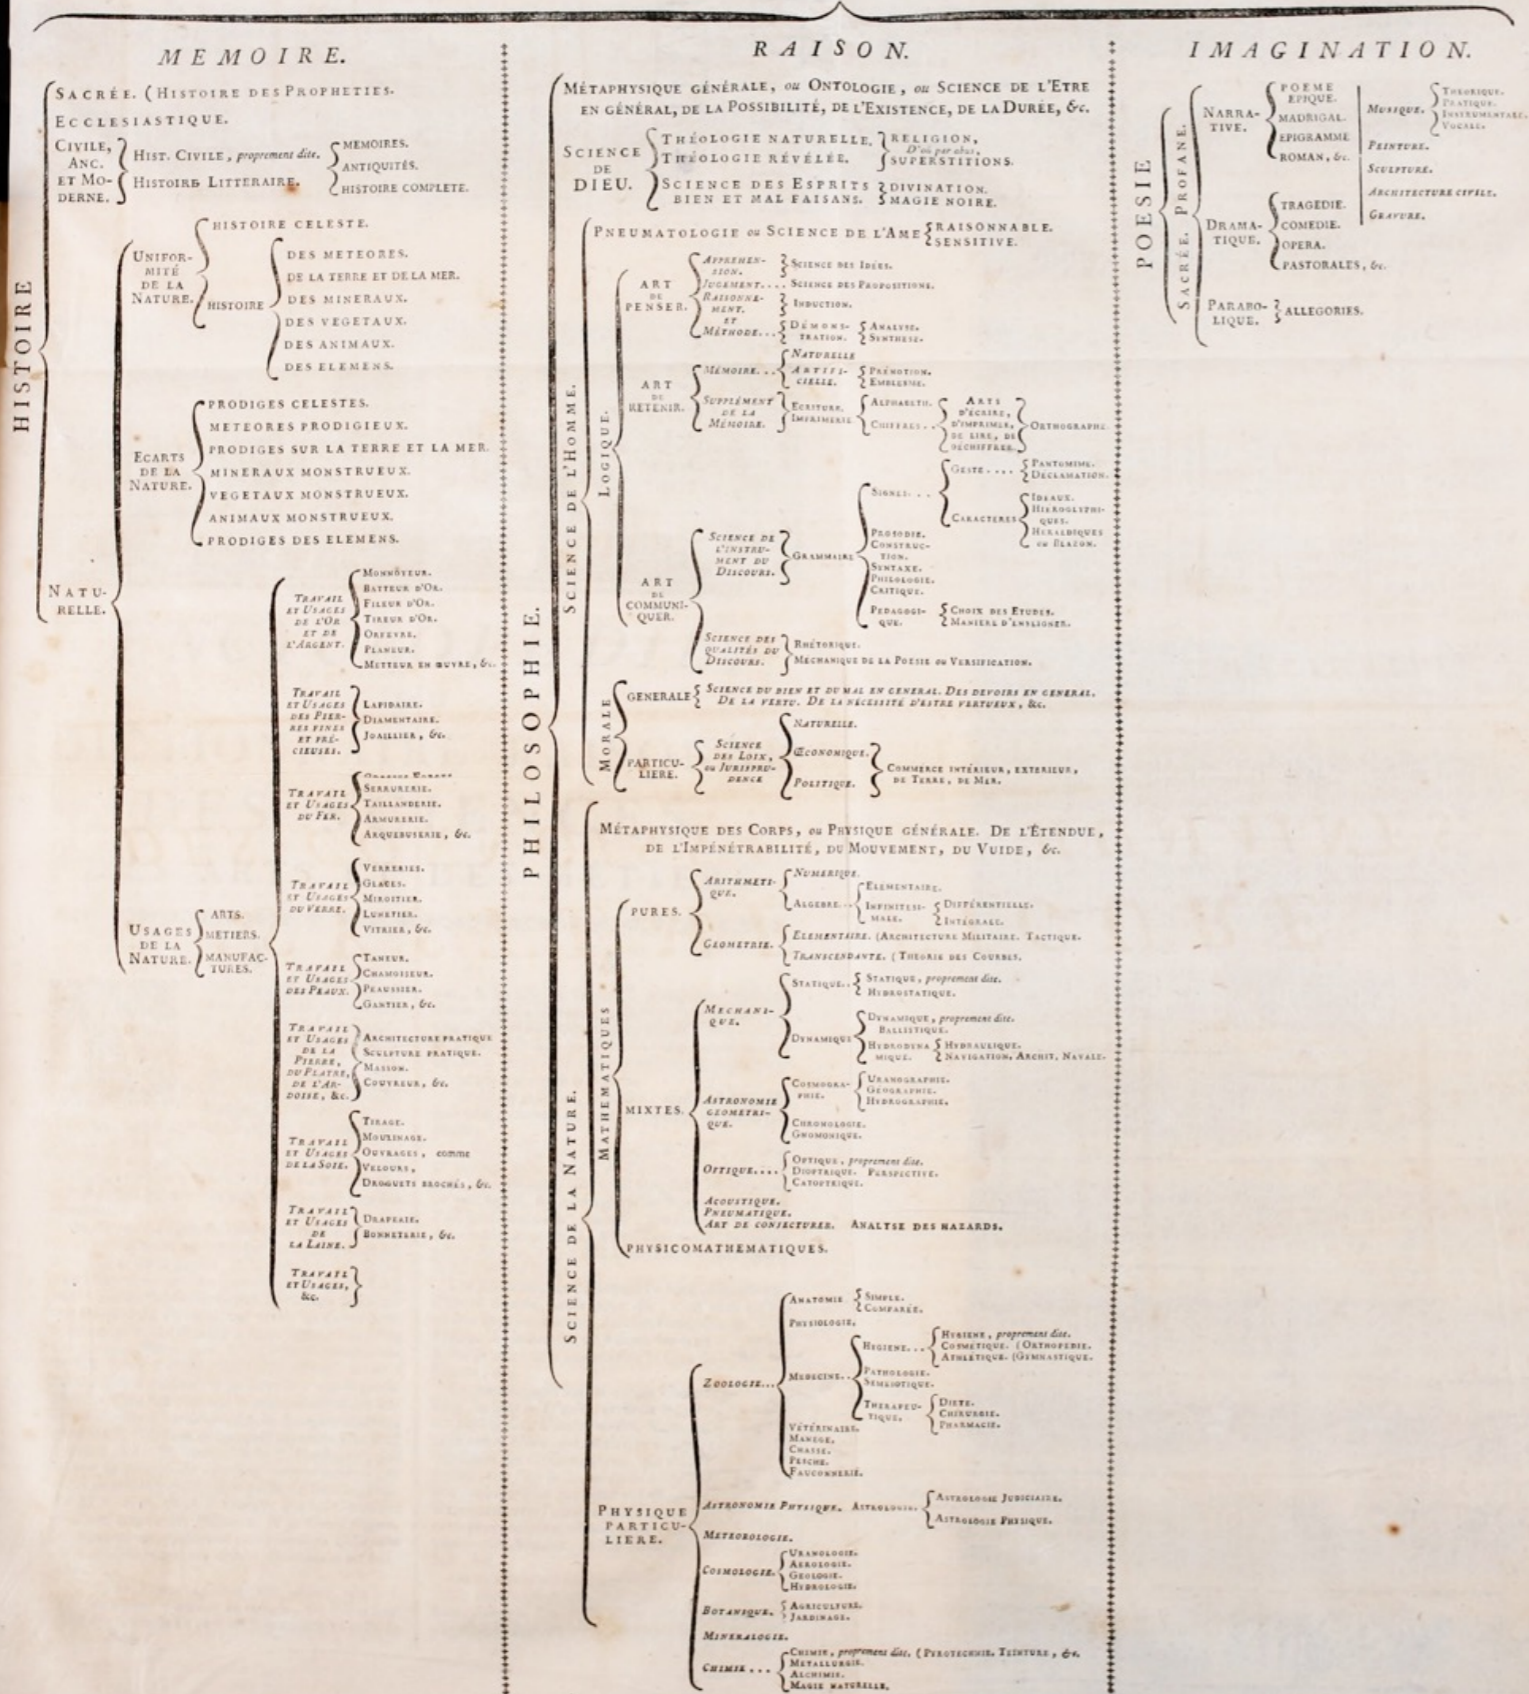 MEMOIRE.
HISTOIRE
SACRÉE. (HISTOIRE DES PROPHETIES.
ECCLESIASTIQUE.
CIVILE,
ANC.
ET MO-
DERNE.
HIST. CIVILE, proprement dite.
HISTOIRE LITTERAIRE.
MEMOIRES.
ANTIQUITÉS.
HISTOIRE COMPLETE.
NATU-
RELLE.
UNIFOR-
MITÉ
DE LA
NATURE.
HISTOIRE CELESTE.
HISTOIRE
DES METEORES.
DE LA TERRE ET DE LA MER.
DES MINERAUX.
DES VEGETAUX.
DES ANIMAUX.
DES ELEMENS.
ECARTS
DE LA
NATURE.
PRODIGES CELESTES.
METEORES PRODIGIEUX.
PRODIGES SUR LA TERRE ET LA MER.
MINERAUX MONSTRUEUX.
VEGETAUX MONSTRUEUX.
ANIMAUX MONSTRUEUX.
PRODIGES DES ELEMENS.
USAGES
DE LA
NATURE.
ARTS.
METIERS.
MANUFAC-
TURES.
TRAVAIL
ET USAGES
DE L'OR
ET DE
L'ARGENT.
MONNOYEUR.
BATTEUR D'OR.
FILEUR D'OR.
TIREUR D'OR.
ORFEVRE.
PLANEUR.
METTEUR EN ŒUVRE, &c.
TRAVAIL
ET USAGES
DES PIER-
RES FINES
ET PRÉ-
CIEUSES.
LAPIDAIRE.
DIAMENTAIRE.
JOAILLIER, &c.
TRAVAIL
ET USAGES
DU FER.
SERRURERIE.
TAILLANDERIE.
ARMURERIE.
ARQUEBUSERIE, &c.
TRAVAIL
ET USAGES
DU VERRE.
VERRERIES.
GLACES.
MIROITIER.
LUNETIER.
VITRIER, &c.
TRAVAIL
ET USAGES
DES PEAUX.
TANEUR.
CHAMOISEUR.
PEAUSSIER.
GANTIER, &c.
TRAVAIL
ET USAGES
DE LA
PIERRE,
DU PLATRE,
DE L'AR-
DOISE, &c.
ARCHITECTURE PRATIQUE
SCULPTURE PRATIQUE.
MASSON.
COUVREUR, &c.
TRAVAIL
ET USAGES
DE LA SOIE.
TIRAGE.
MOULINAGE.
OUVRAGES, comme
VELOURS,
DROGUETS BROCHÉS, &c.
TRAVAIL
ET USAGES
DE
LA LAINE.
DRAPERIE.
BONNETERIE, &c.
TRAVAIL
ET USAGES,
&c.
RAISON.
PHILOSOPHIE.
MÉTAPHYSIQUE GÉNÉRALE, ou ONTOLOGIE, ou SCIENCE DE L'ETRE
EN GÉNÉRAL, DE LA POSSIBILITÉ, DE L'EXISTENCE, DE LA DURÉE, &c.
SCIENCE
DE
DIEU.
THÉOLOGIE NATURELLE.
THÉOLOGIE RÉVÉLÉE.
RELIGION,
D'où par abus,
SUPERSTITIONS.
SCIENCE DES ESPRITS
BIEN ET MAL FAISANS.
DIVINATION.
MAGIE NOIRE.
SCIENCE DE L'HOMME.
PNEUMATOLOGIE ou SCIENCE DE L'AME
RAISONNABLE.
SENSITIVE.
LOGIQUE.
ART
DE
PENSER.
APPREHEN-
SION.
SCIENCE DES IDÉES.
JUGEMENT.... SCIENCE DES PROPOSITIONS.
RAISONNE-
MENT.
ET
INDUCTION.
MÉTHODE...
DÉMONS-
TRATION.
ANALYSE.
SYNTHESE.
ART
DE
RETENIR.
MÉMOIRE...
NATURELLE
ARTIFI-
CIELLE.
PRÉNOTION.
EMBLEME.
SUPPLÉMENT
DE LA
MÉMOIRE.
ECRITURE.
IMPRIMERIE
ALPHABETH.
CHIFFRES..
ARTS
D'ÉCRIRE,
D'IMPRIMER,
DE LIRE, DE
DÉCHIFFRER.
ORTHOGRAPHE.
ART
DE
COMMUNI-
QUER.
SCIENCE DE
L'INSTRU-
MENT DU
DISCOURS.
GRAMMAIRE
SIGNES...
GESTE....
PANTOMIME.
DÉCLAMATION.
CARACTERES
IDEAUX.
HIEROGLYPHI-
QUES.
HERALDIQUES
ou BLAZON.
PROSODIE.
CONSTRUC-
TION.
SYNTAXE.
PHILOLOGIE.
CRITIQUE.
PEDAGOGI-
QUE.
CHOIX DES ETUDES.
MANIERE D'ENSEIGNER.
SCIENCE DES
QUALITÉS DU
DISCOURS.
RHÉTORIQUE.
MECHANIQUE DE LA POESIE ou VERSIFICATION.
MORALE
GENERALE
SCIENCE DU BIEN ET DU MAL EN GENERAL. DES DEVOIRS EN GENERAL.
DE LA VERTU. DE LA NÉCESSITÉ D'ESTRE VERTUEUX, &c.
PARTICU-
LIERE.
SCIENCE
DES LOIX,
ou JURISPRU-
DENCE
NATURELLE.
ŒCONOMIQUE.
POLITIQUE.
COMMERCE INTÉRIEUR, EXTERIEUR,
DE TERRE, DE MER.
SCIENCE DE LA NATURE.
MÉTAPHYSIQUE DES CORPS, ou PHYSIQUE GÉNÉRALE. DE L'ÉTENDUE,
DE L'IMPÉNÉTRABILITÉ, DU MOUVEMENT, DU VUIDE, &c.
MATHEMATIQUES
PURES.
ARITHMETI-
QUE.
NUMERIQUE.
ALGEBRE...
ELEMENTAIRE.
INFINITESI-
MALE.
DIFFÉRENTIELLE.
INTÉGRALE.
GEOMETRIE.
ELEMENTAIRE. (ARCHITECTURE MILITAIRE. TACTIQUE.
TRANSCENDANTE. (THEORIE DES COURBES.
MIXTES.
MECHANI-
QUE.
STATIQUE..
STATIQUE, proprement dite.
HYDROSTATIQUE.
DYNAMIQUE
DYNAMIQUE, proprement dite.
BALLISTIQUE.
HYDRODYNA
MIQUE.
HYDRAULIQUE.
NAVIGATION, ARCHIT. NAVALE.
ASTRONOMIE
GEOMETRI-
QUE.
COSMOGRA-
PHIE.
URANOGRAPHIE.
GEOGRAPHIE.
HYDROGRAPHIE.
CHRONOLOGIE.
GNOMONIQUE.
OPTIQUE....
OPTIQUE, proprement dite.
DIOPTRIQUE. PERSPECTIVE.
CATOPTRIQUE.
ACOUSTIQUE.
PNEUMATIQUE.
ART DE CONJECTURER. ANALYSE DES HAZARDS.
PHYSICOMATHEMATIQUES.
PHYSIQUE
PARTICU-
LIERE.
ZOOLOGIE...
ANATOMIE
SIMPLE.
COMPARÉE.
PHYSIOLOGIE.
MEDECINE..
HYGIENE...
HYGIENE, proprement dite.
COSMÉTIQUE. (ORTHOPEDIE.
ATHLÉTIQUE. (GYMNASTIQUE.
PATHOLOGIE.
SEMEIOTIQUE.
THERAPEU-
TIQUE.
DIETE.
CHIRURGIE.
PHARMACIE.
VÉTÉRINAIRE.
MANEGE.
CHASSE.
PESCHE.
FAUCONNERIE.
ASTRONOMIE PHYSIQUE. ASTROLOGIE.
ASTROLOGIE JUDICIAIRE.
ASTROLOGIE PHYSIQUE.
METEOROLOGIE.
COSMOLOGIE.
URANOLOGIE.
AEROLOGIE.
GEOLOGIE.
HYDROLOGIE.
BOTANIQUE.
AGRICULTURE.
JARDINAGE.
MINERALOGIE.
CHIMIE...
CHIMIE, proprement dite. (PYROTECHNIE. TEINTURE, &c.
METALLURGIE.
ALCHIMIE.
MAGIE NATURELLE.
IMAGINATION.
POESIE
SACRÉE. PROFANE.
NARRA-
TIVE.
POEME
EPIQUE.
MADRIGAL.
EPIGRAMME
ROMAN, &c.
DRAMA-
TIQUE.
TRAGEDIE.
COMEDIE.
OPERA.
PASTORALES, &c.
PARABO-
LIQUE.
ALLEGORIES.
MUSIQUE.
THEORIQUE.
PRATIQUE.
INSTRUMENTALE.
VOCALE.
PEINTURE.
SCULPTURE.
ARCHITECTURE CIVILE.
GRAVURE.